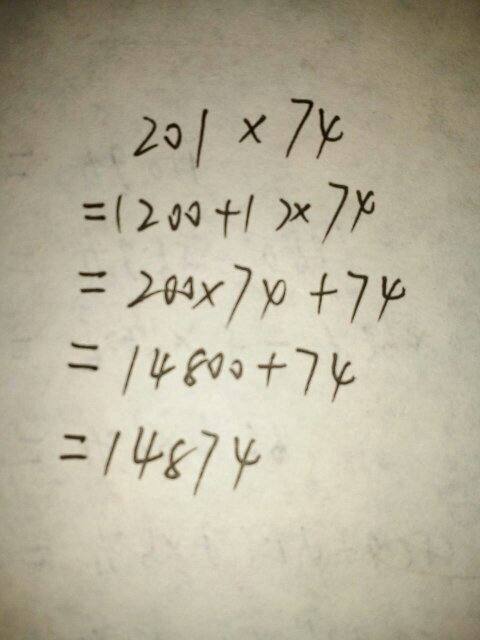 201 × 74
=(200+1)×74
= 200×74 + 74
= 14800+74
= 14874